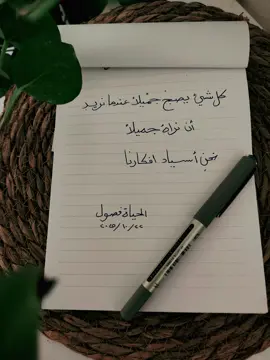 كل شيء يصبح جميلاً عندما نريد
أن نراه جميلاً
نحن أسياد افكارنا
الحياة فصول